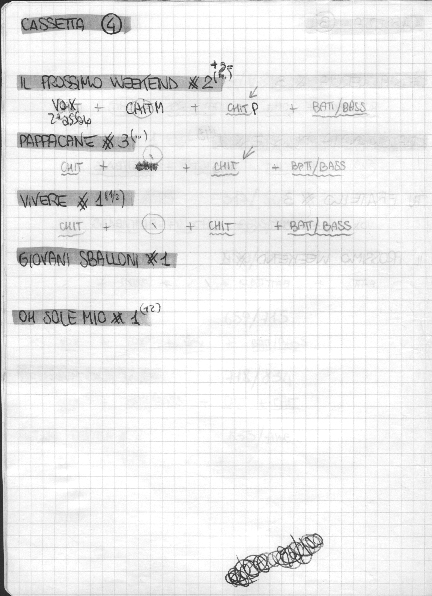 CASSETTA 4
IL PROSSIMO WEEKEND # 2
VOX + CHITM + CHIT P + BATT/BASS
PAPPACANE # 3 (...)
CHIT + + CHIT + BATT/BASS
VIVERE # 1 (1/2)
CHIT + + CHIT + BATT/BASS
GIOVANI SBALLONI # 1
OH SOLE MIO # 1 (12)